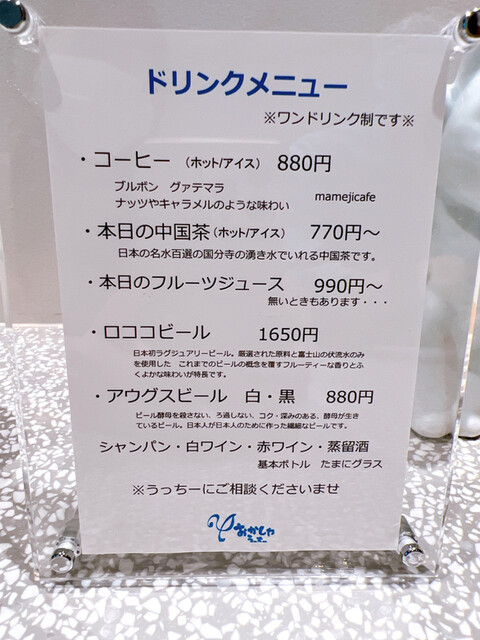 ドリンクメニュー
※ワンドリンク制です※
・コーヒー (ホット/アイス) 880円
ブルボン グァテマラ
ナッツやキャラメルのような味わい mamejicafe
・本日の中国茶(ホット/アイス) 770円～
日本の名水百選の国分寺の湧き水でいれる中国茶です。
・本日のフルーツジュース 990円～
無いときもあります・・・
・ロココビール 1650円
日本初ラグジュアリービール。厳選された原料と富士山の伏流水のみ
を使用した これまでのビールの概念を覆すフルーティーな香りとふ
くよかな味わいが特長です。
・アウグスビール 白・黒 880円
ビール酵母を殺さない、ろ過しない、コク・深みのある、酵母が生き
ているビール。日本人が日本人のために作った繊細なビールです。
シャンパン・白ワイン・赤ワイン・蒸留酒
基本ボトル たまにグラス
※うっちーにご相談くださいませ
おかしや
うっちー